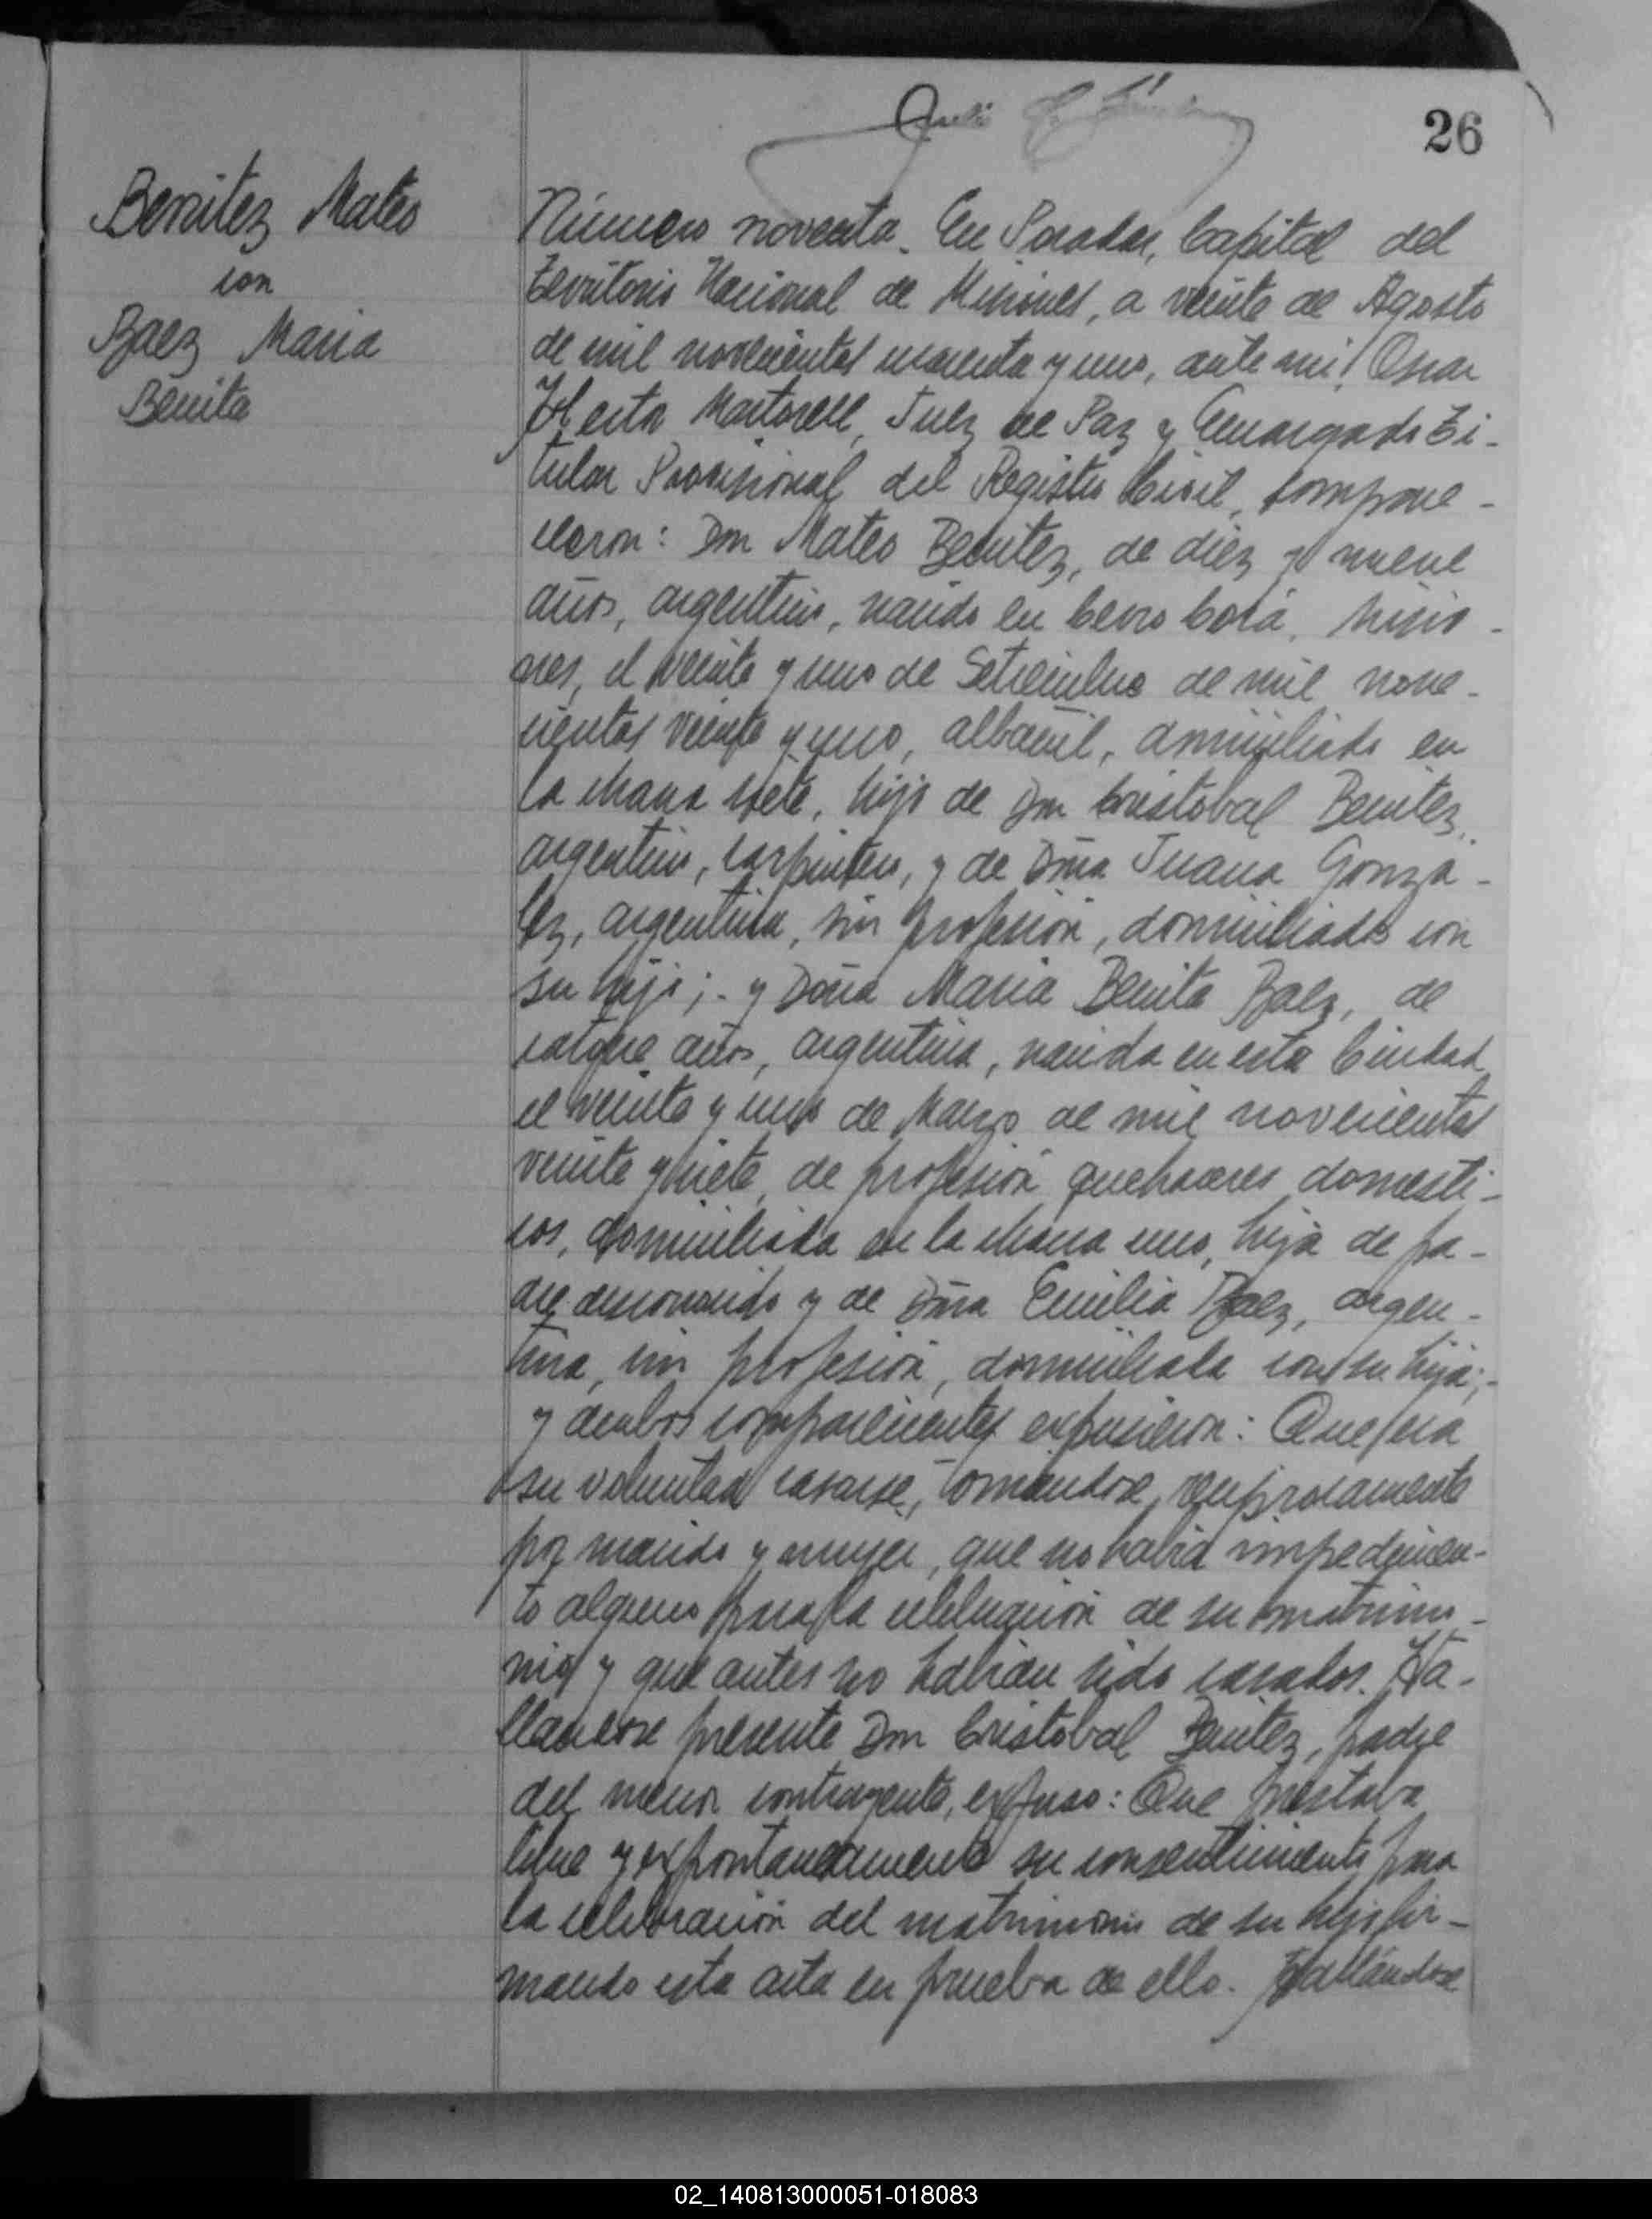 26
Benitez Mateo
con
Baez Maria
Benita
Número noventa. En Posadas, Capital del
Territorio Nacional de Misiones, a veinte de Agosto
de mil novecientos cuarenta y uno, ante mi, Oscar
Martorell, Juez de Paz y Encargado Ti-
tular Provisional del Registro Civil, compare-
cieron: Don Mateo Benitez, de diez y nueve
años, argentino, nacido en Cerro Corá, Misio-
nes, el veinte y uno de Setiembre de mil nove-
cientos veinte y uno, albañil, domiciliado en
la chacra siete, hijo de Don Cristobal Benitez,
argentino, carpintero, y de Dña Juana Gonza-
lez, argentina, sin profesión, domiciliados con
su hijo;- y Doña Maria Benita Baez, de
catorce años, argentina, nacida en esta Ciudad
el veinte y uno de Marzo de mil novecientos
veinte y siete, de profesión quehaceres domesti-
cos, domiciliada en la chacra uno, hija de pa-
dre desconocido y de Dña Emilia Baez, argen-
tina, sin profesión, domiciliada con su hija;-
y ambos comparecientes expusieron: Que era
su voluntad casarse, tomandose reciprocamente
por marido y mujer, que no habia impedimen-
to alguno para la celebración de su matrimo-
nio y que antes no habian sido casados. Ha-
llandose presente Don Cristobal Benitez, padre
del menor contrayente, expuso: Que prestaba
libre y expontaneamente su consentimiento para
la celebración del matrimonio de su hijo fir-
mando esta acta en prueba de ello. Hallándose
02_140813000051-018083